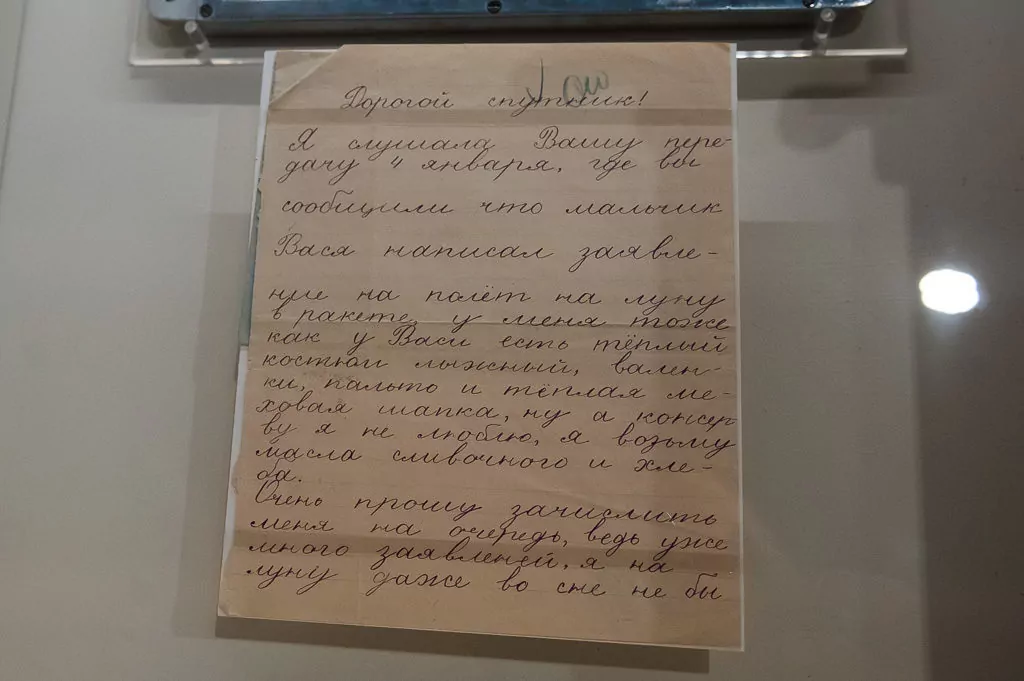 Дорогой спутник!
Я слушала Вашу пере-
дачу 4 января, где вы
сообщили что мальчик
Вася написал заявле-
ние на полёт на луну
в ракете, у меня тоже
как у Васи есть тёплый
костюм лыжный, вален-
ки, пальто и тёплая ме-
ховая шапка, ну а консер-
ву я не люблю, я возьму
масла сливочного и хле-
ба.
Очень прошу зачислить
меня на очередь, ведь уже
много заявлений, я на
луну даже во сне не бы